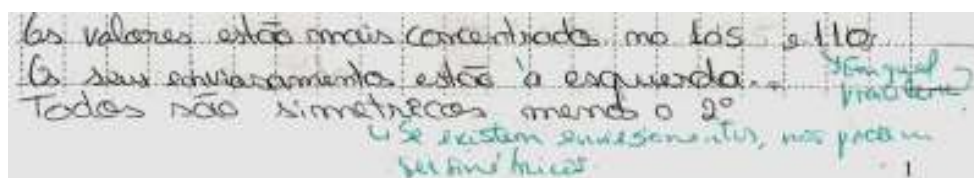 Os valores estão mais concentrado no 105 e 110
O seu enviasamento estão à esquerda..
Todos são simetrecos menos o 2º
Em qual
Se existem enviesamentos, não podem
ser simétricos
1